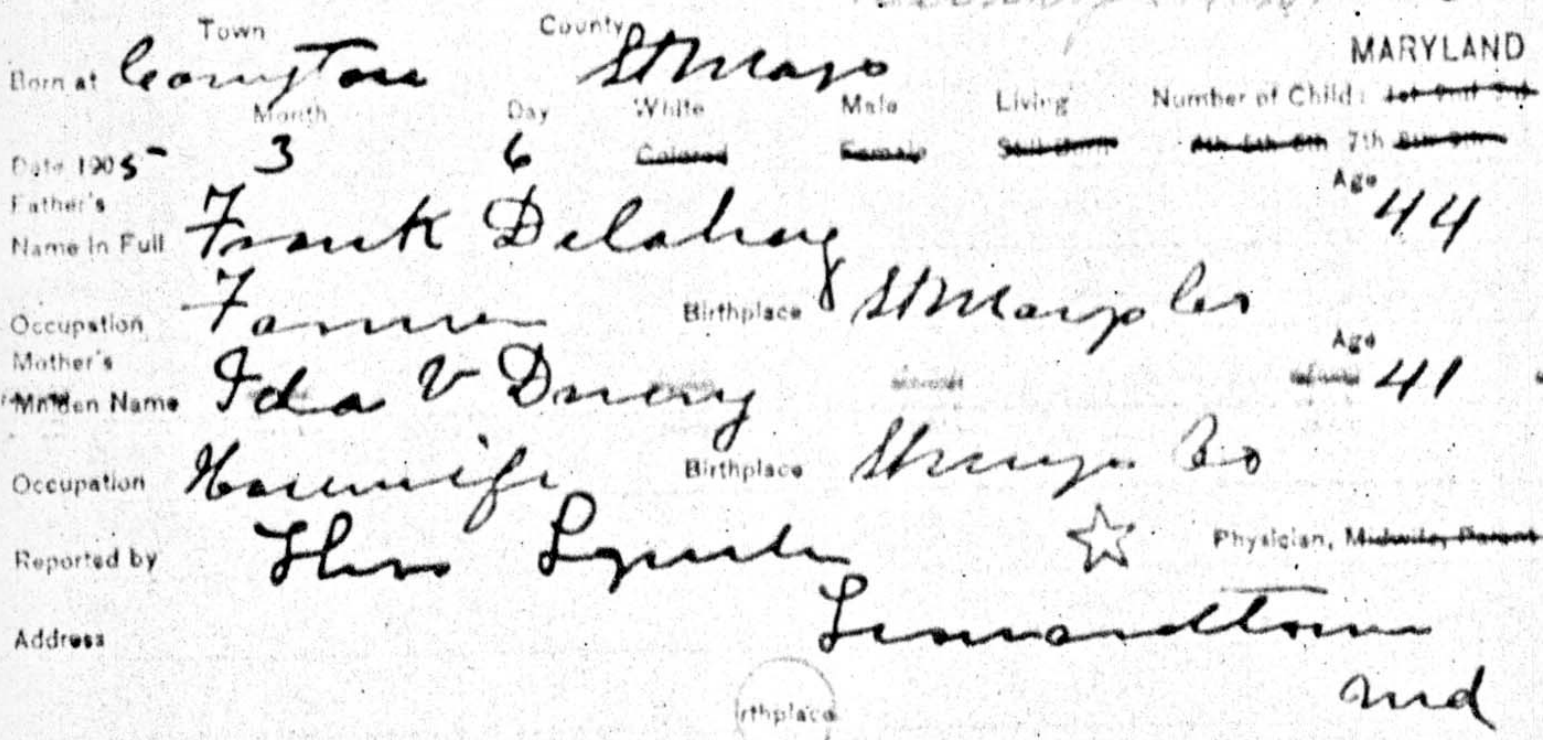 Town County
MARYLAND
Born at Compton St Marys
Month Day White Male Living Number of Child: 1st 2nd 3rd
Date 1905 3 6 Colored Female Still Born 4th 5th 6th 7th 8th 9th
Father's Age 44
Name in Full Frank Delahay
Occupation Farmer Birthplace St Marys Co
Mother's Age
Maiden Name Ida V Drury 41
Occupation Housewife Birthplace St Marys Co
Reported by Thos Lynch ☆ Physician, Midwife, Parent
Address Leonardtown
Md
rthplace